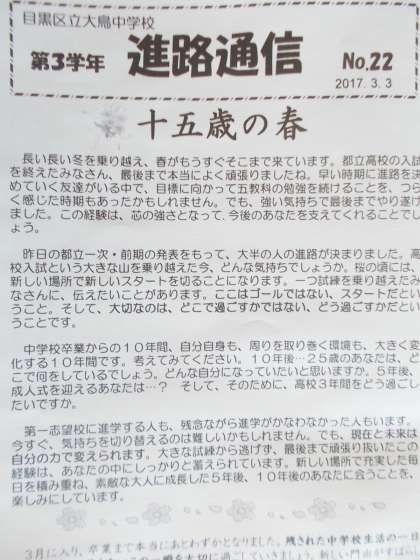 目黒区立大鳥中学校
第3学年 進路通信 No.22
2017. 3. 3
十五歳の春
長い長い冬を乗り越え、春がもうすぐそこまで来ています。都立高校の入試
を終えたみなさん、最後まで本当によく頑張りましたね。早い時期に進路を決
めていく友達がいる中で、目標に向かって五教科の勉強を続けることを、つら
く感じた時期もあったかもしれません。でも、強い気持ちで最後までやり遂げ
ました。この経験は、芯の強さとなって、今後のあなたを支えてくれることでし
ょう。
昨日の都立一次・前期の発表をもって、大半の人の進路が決まりました。高
校入試という大きな山を乗り越えた今、どんな気持ちでしょうか。桜の頃には、
新しい場所で新しいスタートを切ることになります。一つ試練を乗り越えたみ
なさんに、伝えたいことがあります。ここはゴールではない、スタートだとい
うこと。そして、大切なのは、どこで過ごすかではない、どう過ごすかだとい
うことです。
中学校卒業からの１０年間、自分自身も、周りを取り巻く環境も、大きく変
化する１０年間です。考えてみてください。１０年後…２５歳のあなたは、ど
こで何をしているでしょう。どんな自分になっていたいと思いますか。５年後、
成人式を迎えるあなたは…？ そして、そのために、高校３年間をどう過ごし
たいですか。
第一志望校に進学する人も、残念ながら進学がかなわなかった人もいます。
今すぐ、気持ちを切り替えるのは難しいかもしれません。でも、現在と未来は
自分の力で変えられます。大きな試練から逃げず、最後まで頑張り抜いたこの
経験は、あなたの中にしっかりと蓄えられています。新しい場所で充実した毎
日を積み重ね、素敵な大人に成長した５年後、１０年後のあなたに会うことを、
楽しみにしています。
３月に入り、卒業まで本当にあとわずかとなりました。残された中学校生活の一